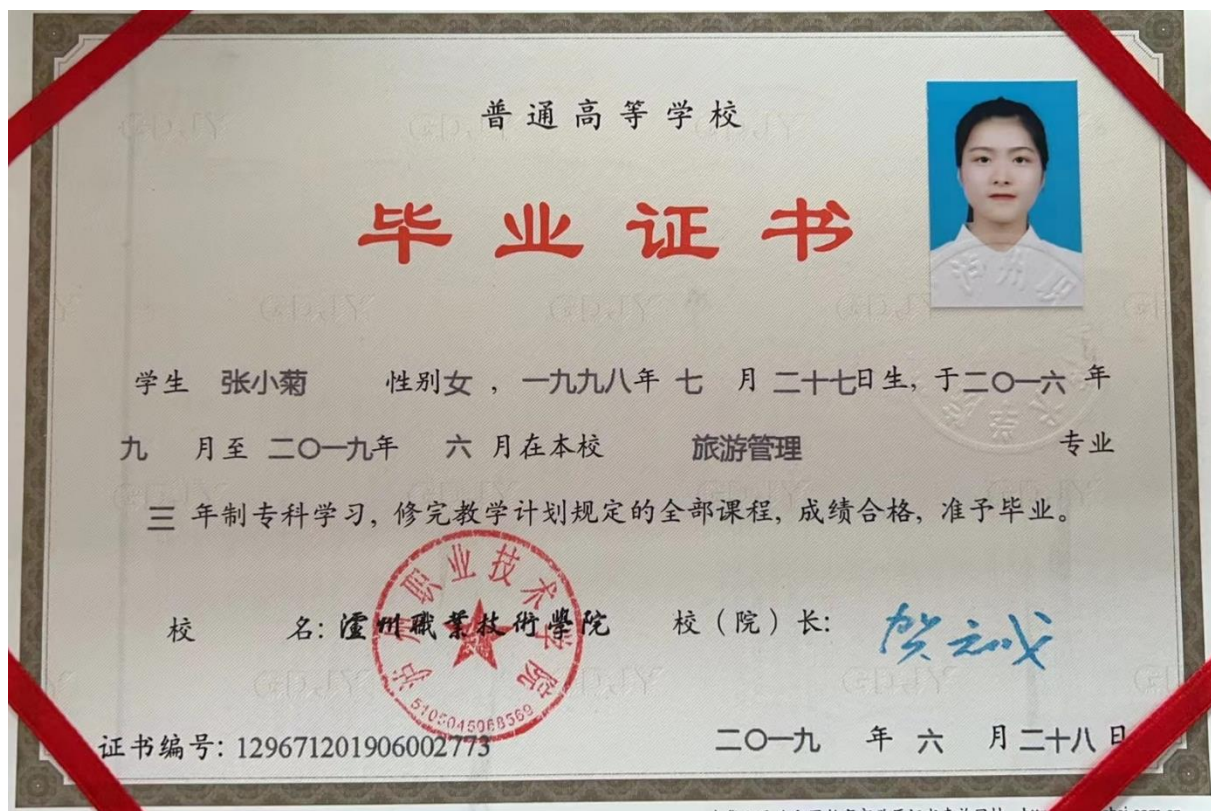 普通高等学校
毕业证书
学生 张小菊 性别女，一九九八年 七 月 二十七日生，于二〇一六 年
九 月至 二〇一九年 六 月在本校 旅游管理 专业
三 年制专科学习，修完教学计划规定的全部课程，成绩合格，准予毕业。
校 名：瀘州職業技術學院 校（院）长：贺元成
泸州职业技术学院
5105045068369
证书编号：129671201906002773 二〇一九 年 六 月 二十八 日
GDJY
泸州职